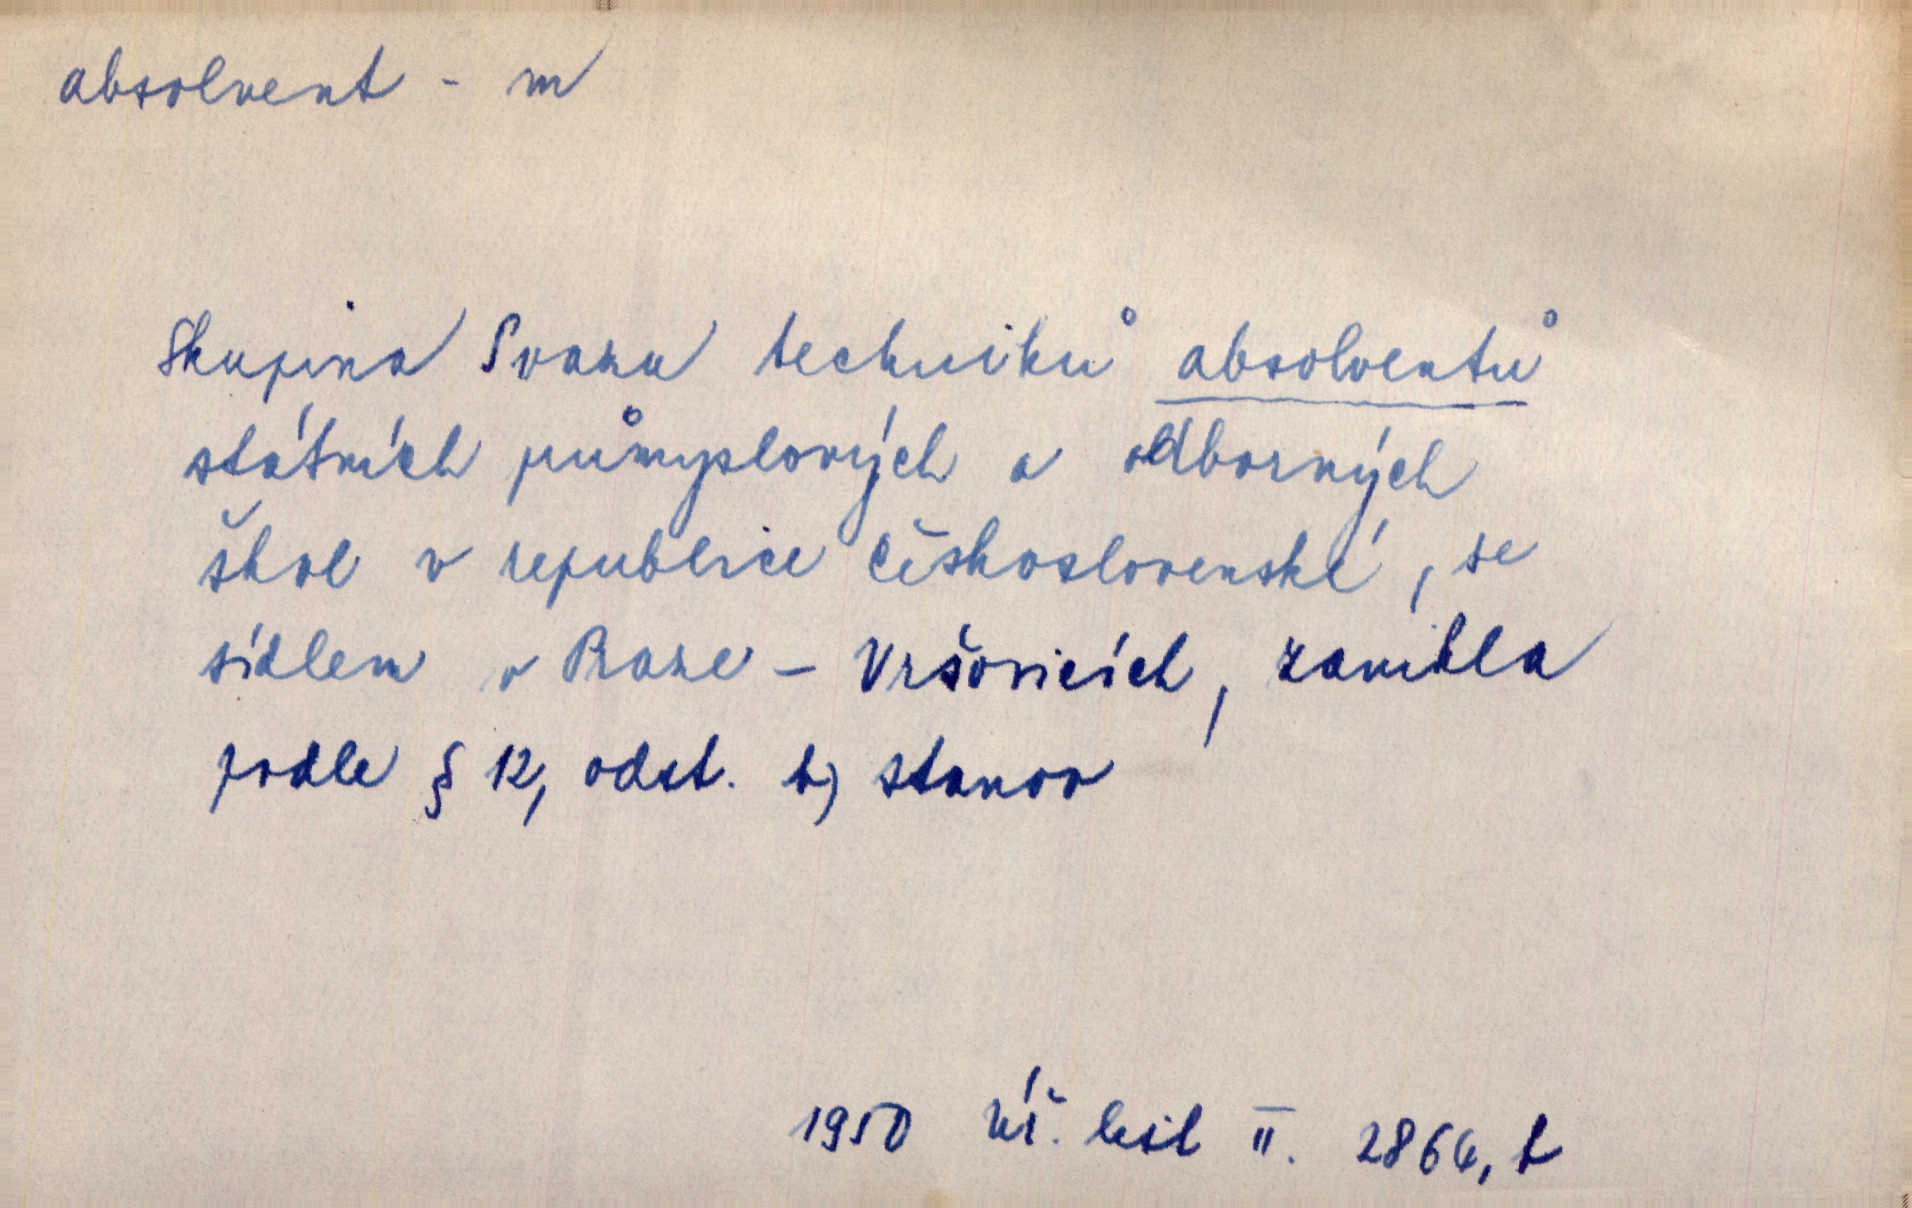 absolvent - m
Skupina Svazu techniků absolventů
státních průmyslových a odborných
škol v republice Československé, se
sídlem v Praze - Vršovicích, zanikla
podle § 12, odst. b) stanov
1950 Úř. list II. 2866, b